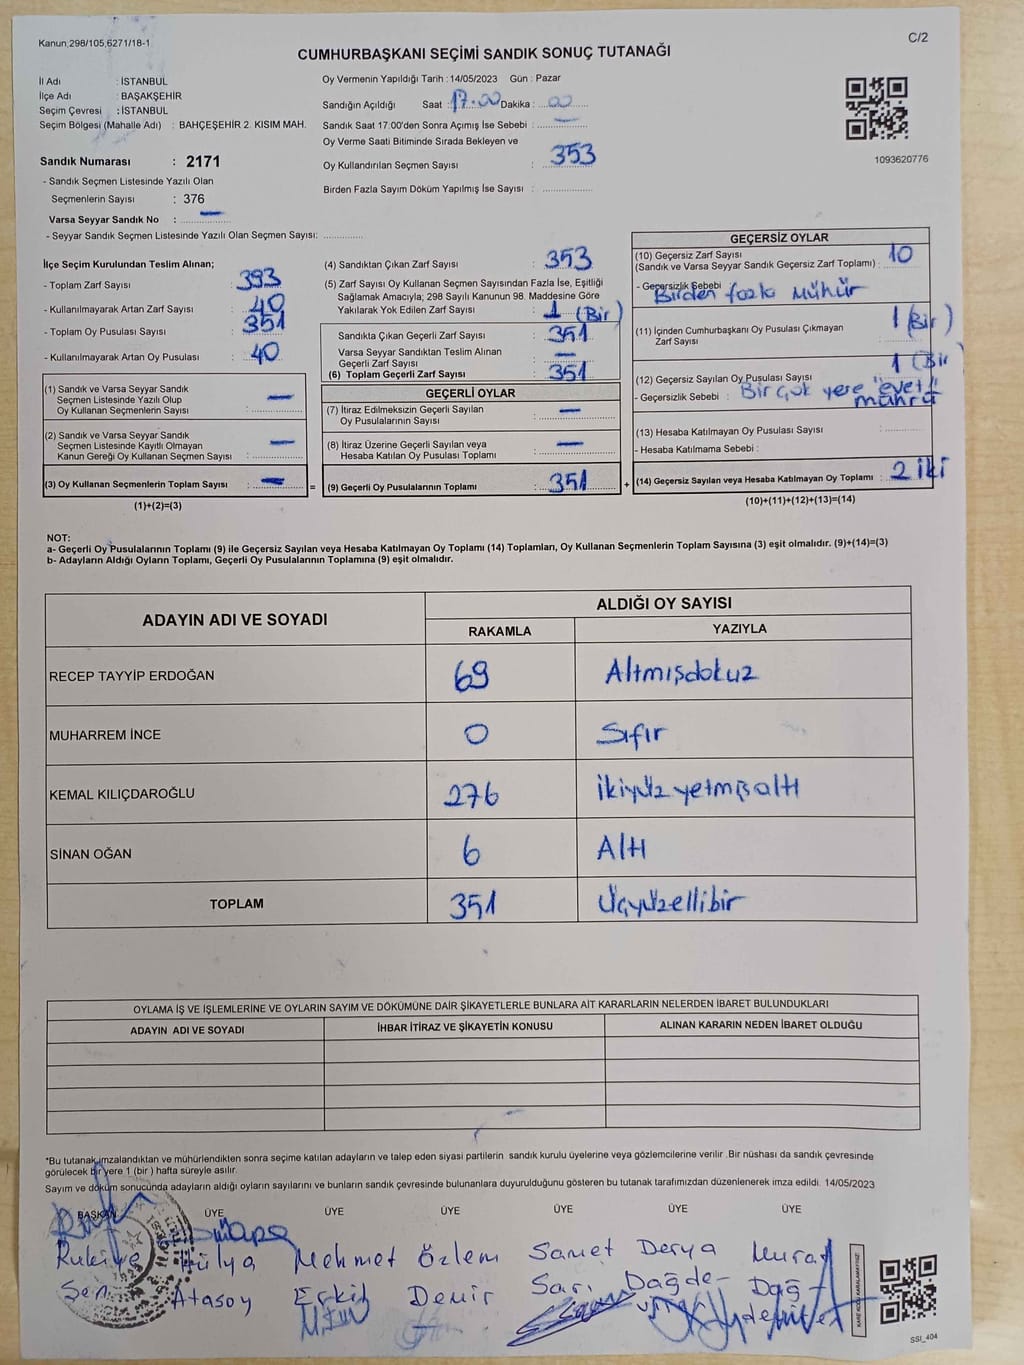 Kanun,298/105,6271/18-1
C/2
CUMHURBAŞKANI SEÇİMİ SANDIK SONUÇ TUTANAĞI
İl Adı : İSTANBUL
İlçe Adı : BAŞAKŞEHİR
Seçim Çevresi : İSTANBUL
Seçim Bölgesi (Mahalle Adı) : BAHÇEŞEHİR 2. KISIM MAH.
Sandık Numarası : 2171
- Sandık Seçmen Listesinde Yazılı Olan
Seçmenlerin Sayısı : 376
Varsa Seyyar Sandık No : —
- Seyyar Sandık Seçmen Listesinde Yazılı Olan Seçmen Sayısı: ..............
Oy Vermenin Yapıldığı Tarih : 14/05/2023 Gün : Pazar
Sandığın Açıldığı Saat : 17.00 Dakika : 00
Sandık Saat 17:00'den Sonra Açımış İse Sebebi : —
Oy Verme Saati Bitiminde Sırada Bekleyen ve
Oy Kullandırılan Seçmen Sayısı : 353
Birden Fazla Sayım Döküm Yapılmış İse Sayısı : ..............
1093620776
İlçe Seçim Kurulundan Teslim Alınan;
- Toplam Zarf Sayısı : 393
- Kullanılmayarak Artan Zarf Sayısı : 40
- Toplam Oy Pusulası Sayısı : 351
- Kullanılmayarak Artan Oy Pusulası : 40
(1) Sandık ve Varsa Seyyar Sandık
Seçmen Listesinde Yazılı Olup
Oy Kullanan Seçmenlerin Sayısı : —
(2) Sandık ve Varsa Seyyar Sandık
Seçmen Listesinde Kayıtlı Olmayan
Kanun Gereği Oy Kullanan Seçmen Sayısı : —
(3) Oy Kullanan Seçmenlerin Toplam Sayısı : —
=
(1)+(2)=(3)
(4) Sandıktan Çıkan Zarf Sayısı : 353
(5) Zarf Sayısı Oy Kullanan Seçmen Sayısından Fazla İse, Eşitliği
Sağlamak Amacıyla; 298 Sayılı Kanunun 98. Maddesine Göre
Yakılarak Yok Edilen Zarf Sayısı : 1 (Bir)
Sandıkta Çıkan Geçerli Zarf Sayısı : 351
Varsa Seyyar Sandıktan Teslim Alınan
Geçerli Zarf Sayısı : —
(6) Toplam Geçerli Zarf Sayısı : 351
GEÇERLİ OYLAR
(7) İtiraz Edilmeksizin Geçerli Sayılan
Oy Pusulalarının Sayısı : —
(8) İtiraz Üzerine Geçerli Sayılan veya
Hesaba Katılan Oy Pusulası Toplamı : —
(9) Geçerli Oy Pusulalarının Toplamı : 351
+
GEÇERSİZ OYLAR
(10) Geçersiz Zarf Sayısı 10
(Sandık ve Varsa Seyyar Sandık Geçersiz Zarf Toplamı) :
- Geçersizlik Sebebi
Birden fazla mühür
(11) İçinden Cumhurbaşkanı Oy Pusulası Çıkmayan 1 (Bir)
Zarf Sayısı
(12) Geçersiz Sayılan Oy Pusulası Sayısı 1 (Bir
- Geçersizlik Sebebi : Birçok yere "evet"
mührü
(13) Hesaba Katılmayan Oy Pusulası Sayısı
- Hesaba Katılmama Sebebi :
(14) Geçersiz Sayılan veya Hesaba Katılmayan Oy Toplamı : 2 iki
(10)+(11)+(12)+(13)=(14)
NOT:
a- Geçerli Oy Pusulalarının Toplamı (9) ile Geçersiz Sayılan veya Hesaba Katılmayan Oy Toplamı (14) Toplamları, Oy Kullanan Seçmenlerin Toplam Sayısına (3) eşit olmalıdır. (9)+(14)=(3)
b- Adayların Aldığı Oyların Toplamı, Geçerli Oy Pusulalarının Toplamına (9) eşit olmalıdır.
ADAYIN ADI VE SOYADI
ALDIĞI OY SAYISI
RAKAMLA YAZIYLA
RECEP TAYYİP ERDOĞAN 69 Altmışdokuz
MUHARREM İNCE 0 Sıfır
KEMAL KILIÇDAROĞLU 276 ikiyüz yetmişaltı
SİNAN OĞAN 6 Altı
TOPLAM 351 Üçyüzellibir
OYLAMA İŞ VE İŞLEMLERİNE VE OYLARIN SAYIM VE DÖKÜMÜNE DAİR ŞİKAYETLERLE BUNLARA AİT KARARLARIN NELERDEN İBARET BULUNDUKLARI
ADAYIN ADI VE SOYADI İHBAR İTİRAZ VE ŞİKAYETİN KONUSU ALINAN KARARIN NEDEN İBARET OLDUĞU
*Bu tutanak imzalandıktan ve mühürlendikten sonra seçime katılan adayların ve talep eden siyasi partilerin sandık kurulu üyelerine veya gözlemcilerine verilir .Bir nüshası da sandık çevresinde
görülecek bir yere 1 (bir ) hafta süreyle asılır.
Sayım ve döküm sonucunda adayların aldığı oyların sayılarını ve bunların sandık çevresinde bulunanlara duyurulduğunu gösteren bu tutanak tarafımızdan düzenlenerek imza edildi. 14/05/2023
BAŞKAN ÜYE ÜYE ÜYE ÜYE ÜYE ÜYE
Rukiye Hülya Mehmet Özlem Samet Derya Murat
Şen Atasoy Erkit Demir Sarı Dağde- Dağ-
KARE KODU KARALAMAYINIZ!
SSI_404